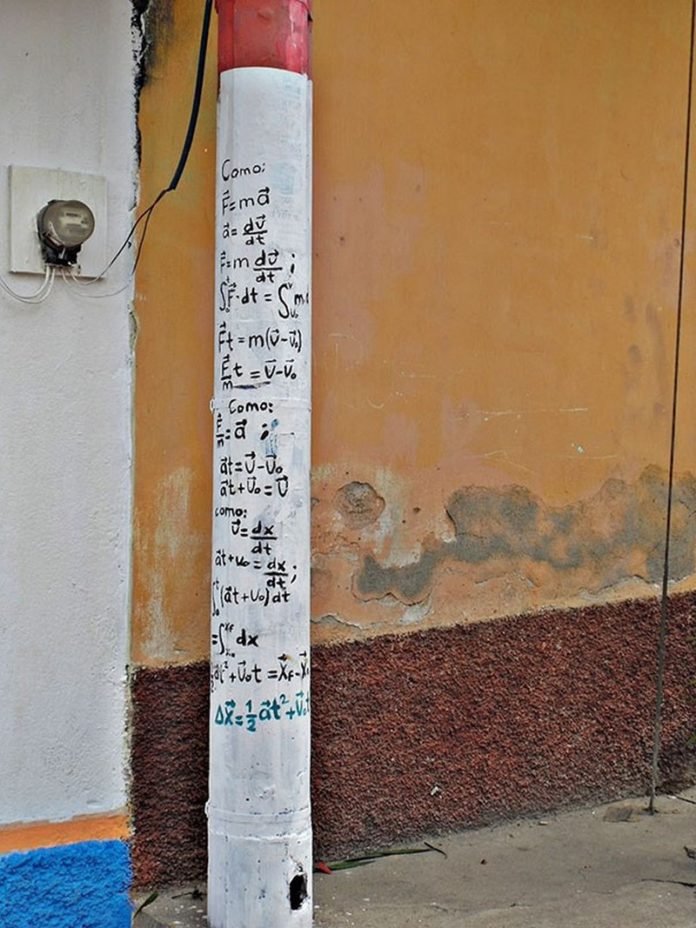 Como:
F⃗=ma⃗
a⃗=dv⃗/dt
F⃗=m dv⃗/dt ;
∫₀ᵗF⃗·dt = ∫ᵥ₀ᵛ m
F⃗t=m(v⃗-v⃗₀)
F⃗/m t = v⃗-v⃗₀
Como:
F⃗/m=a⃗ ;
a⃗t=v⃗-v⃗₀
a⃗t+v⃗₀=v⃗
como:
v⃗=dx/dt
a⃗t+v₀=dx/dt;
∫₀ᵗ(a⃗t+v₀)dt
=∫ₓ₀ˣᶠ dx
½a⃗t²+v⃗₀t =x⃗F-x⃗
Δx⃗=½a⃗t²+v⃗₀t